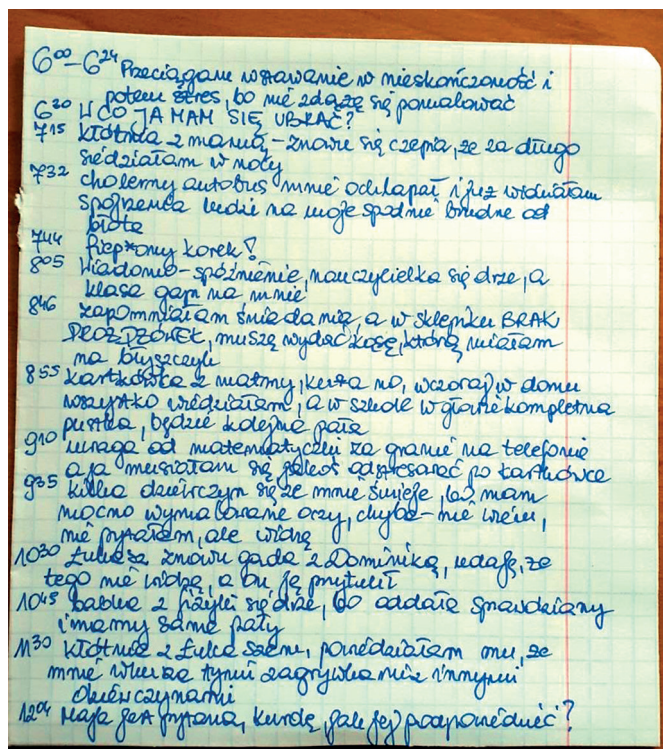 6⁰⁰-6²⁴ Przeciągane wstawanie w nieskończoność i
potem stres, bo nie zdążę się pomalować
6³⁰ W CO JA MAM SIĘ UBRAĆ?
7¹⁵ kłótnia z mamą - znowu się czepia, że za długo
siedziałam w nocy
7³² cholerny autobus mnie ochlapał i już widziałam
spojrzenia ludzi na moje spodnie brudne od
błota
7⁴⁴ piep*ony korek!
8⁰⁵ Wiadomo - spóźnienie, nauczycielka się drze, a
klasa gapi na mnie
8⁴⁶ zapomniałam śniadania, a w sklepiku BRAK
DROŻDŻÓWEK, muszę wydać kasę, którą miałam
na błyszczyk
8⁵⁵ kartkówka z matmy, ku*wa no, wczoraj w domu
wszystko wiedziałam, a w szkole w głowie kompletna
pustka, będzie kolejna pała
9¹⁰ uwaga od matematyczki za granie na telefonie
a ja musiałam się jakoś odstresować po kartkówce
9³⁵ kilka dziewczyn się ze mnie śmieje, bo mam
mocno wymalowane oczy, chyba - nie wiem,
nie pytałam, ale widzę
10³⁰ Łukasz znowu gada z Dominiką, udaję, że
tego nie widzę, a on ją przytulił
10⁴⁵ babka z fizyki się drze, bo oddała sprawdziany
i mamy same pały
11³⁰ kłótnia z Łukaszem, powiedziałam mu, że
mnie wkurza tymi zagrywkami z innymi
dziewczynami
12⁰⁴ Maja jest pytana, kurdę, jak jej podpowiedzieć?